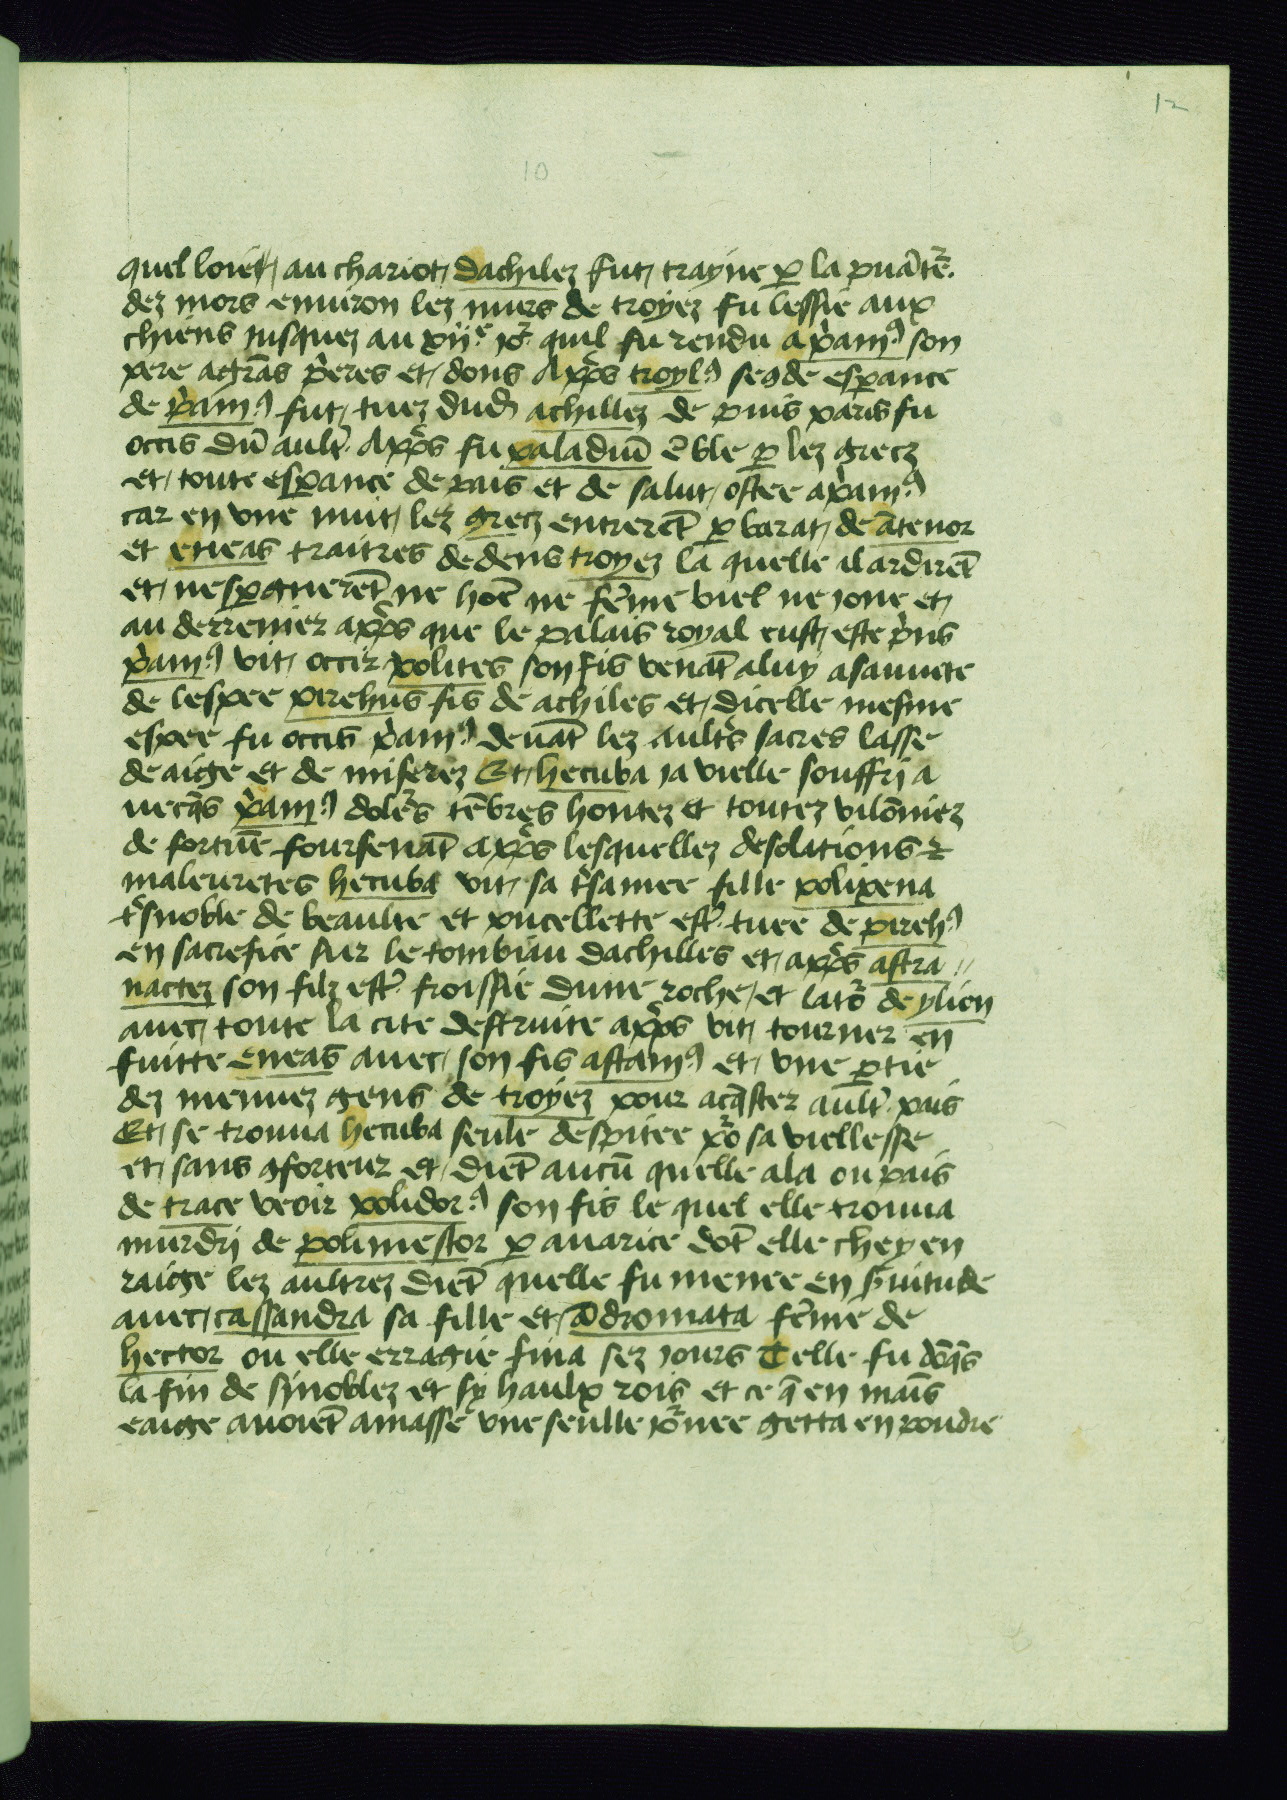 12
10
quel loiet au chariot dachilez fut trayne ꝑ la puāte͛.
dez mors enuiron lez murs de troyez fu lessie aux
chiens jusquez au xijͤ jo͛ quil fu rendu a p̓amꝰ son
pere a grās p̓eres et dons App̓s troylꝰ segde esꝑance
de p̓amꝰ fut tuez dud achillez de puis paris fu
occis dū ault̓. App̓s fu paladiū ēble ꝑ lez grecz
et toute esꝑance de pais et de salut ostee a p̓amꝰ
car en vne nuit lez grecz entrerēt ꝑ barat de ātenor
et eneas traitres dedens troyez la quelle il ardirēt
et nesꝑgnerēt ne hōe ne fēme viel ne jone et
au derrenier app̓s que le palais royal eust este p̓ns
p̓amꝰ vit occir polites son fis venāt a luy a sauuete
de lespee pirehus fis de achiles et dicelle mesme
espee fu occis p̓amꝰ deuāt lez ault̓s sacres lasse
de aige et de miserez Et hecuba ja vielle souffrj a
uecq̄s p̓amꝰ dole͛s tēbres hontez et toutez vilōniez
de fortūe foursenāt app̓s lesquellez desolations ⁊
maleuretes hecuba vit sa t̓samee fille polixena
t̓snoble de beaulte et pucellette est̓ tuee de pirehꝰ
en sacrefice sur le tombiau dachilles et app̓s astra
nactez son filz est̓ froissie dune roche et la to͛ de ylien
auec toute la cite destruite app̓s vit tourner en
fuitte eneas auec son fis astamꝰ et vne ꝑtie
dez menuez gens de troyez pour aq̄ster ault̓ pais
Et se trouua hecuba seule despitee po͛ sa viellesse
et sans gforteur et diēt aucū quelle ala ou pais
de trace veoir polidorꝰ son fis le quel elle trouua
murdrj de polimestor ꝑ auarice dōt elle chey en
raige lez aultrez diēt quelle fu menee en s̓uitude
auec cassandra sa fille et ādromata fēme de
hector ou elle erragie fina sez jours Telle fu dōq̄s
la fin de sy noblez et sy haulx rois et ce q̄ en maīs
eaige auoiēt amasse vne seulle jo͛nee getta en poudre